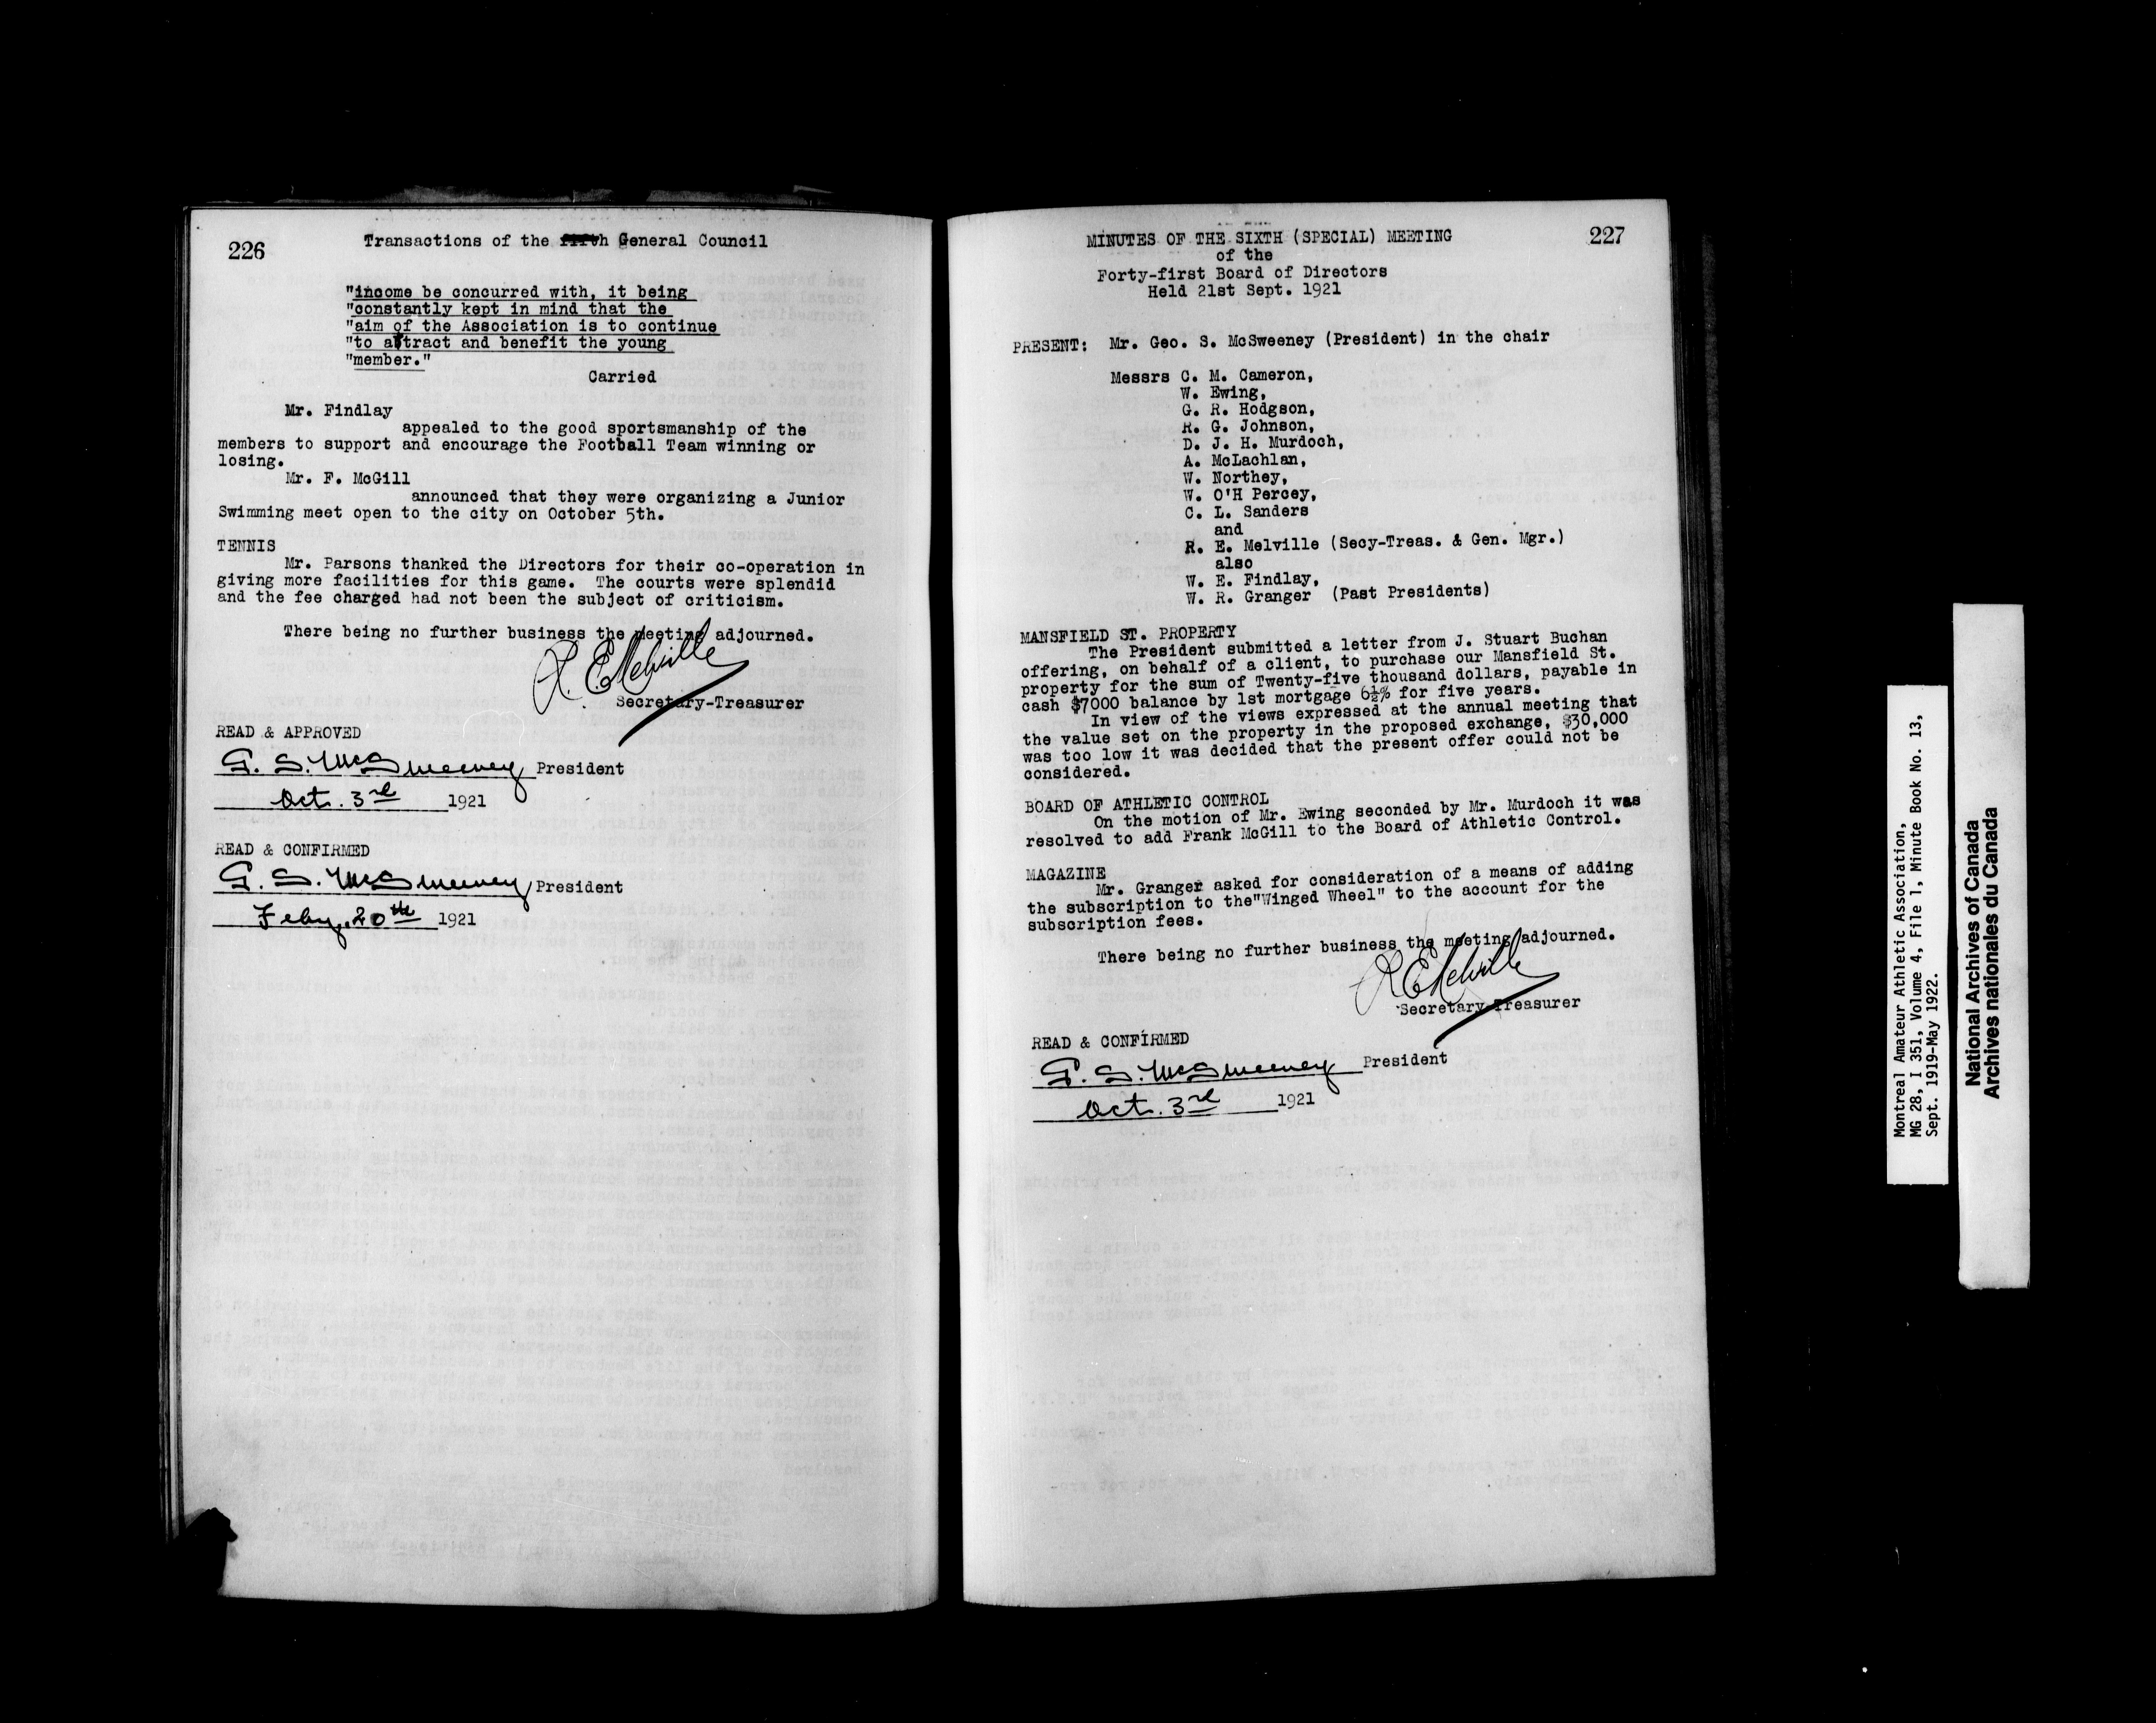 226
Transactions of the fifth General Council
"income be concurred with, it being
"constantly kept in mind that the
"aim of the Association is to continue
"to attract and benefit the young
"member."
Carried
Mr. Findlay
appealed to the good sportsmanship of the
members to support and encourage the Football Team winning or
losing.
Mr. F. McGill
announced that they were organizing a Junior
Swimming meet open to the city on October 5th.
TENNIS
Mr. Parsons thanked the Directors for their co-operation in
giving more facilities for this game. The courts were splendid
and the fee charged had not been the subject of criticism.
There being no further business the meeting adjourned.
R. E. Melville
Secretary-Treasurer
READ & APPROVED
G. S. McSweeney President
Oct. 3rd 1921
READ & CONFIRMED
G. S. McSweeney President
Feby. 20th 1921
MINUTES OF THE SIXTH (SPECIAL) MEETING
227
of the
Forty-first Board of Directors
Held 21st Sept. 1921
PRESENT: Mr. Geo. S. McSweeney (President) in the chair
Messrs C. M. Cameron,
W. Ewing,
G. R. Hodgson,
R. G. Johnson,
D. J. H. Murdoch,
A. McLachlan,
W. Northey,
W. O'H Percey,
C. L. Sanders
and
R. E. Melville (Secy-Treas. & Gen. Mgr.)
also
W. E. Findlay,
W. R. Granger (Past Presidents)
MANSFIELD ST. PROPERTY
The President submitted a letter from J. Stuart Buchan
offering, on behalf of a client, to purchase our Mansfield St.
property for the sum of Twenty-five thousand dollars, payable in
cash $7000 balance by 1st mortgage 6½% for five years.
In view of the views expressed at the annual meeting that
the value set on the property in the proposed exchange, $30,000
was too low it was decided that the present offer could not be
considered.
BOARD OF ATHLETIC CONTROL
On the motion of Mr. Ewing seconded by Mr. Murdoch it was
resolved to add Frank McGill to the Board of Athletic Control.
MAGAZINE
Mr. Granger asked for consideration of a means of adding
the subscription to the"Winged Wheel" to the account for the
subscription fees.
There being no further business the meeting adjourned.
R E Melville
Secretary-Treasurer
READ & CONFIRMED
G. S. McSweeney President
Oct. 3rd 1921
Montreal Amateur Athletic Association,
MG 28, I 351, Volume 4, File 1, Minute Book No. 13,
Sept. 1919-May 1922.
National Archives of Canada
Archives nationales du Canada